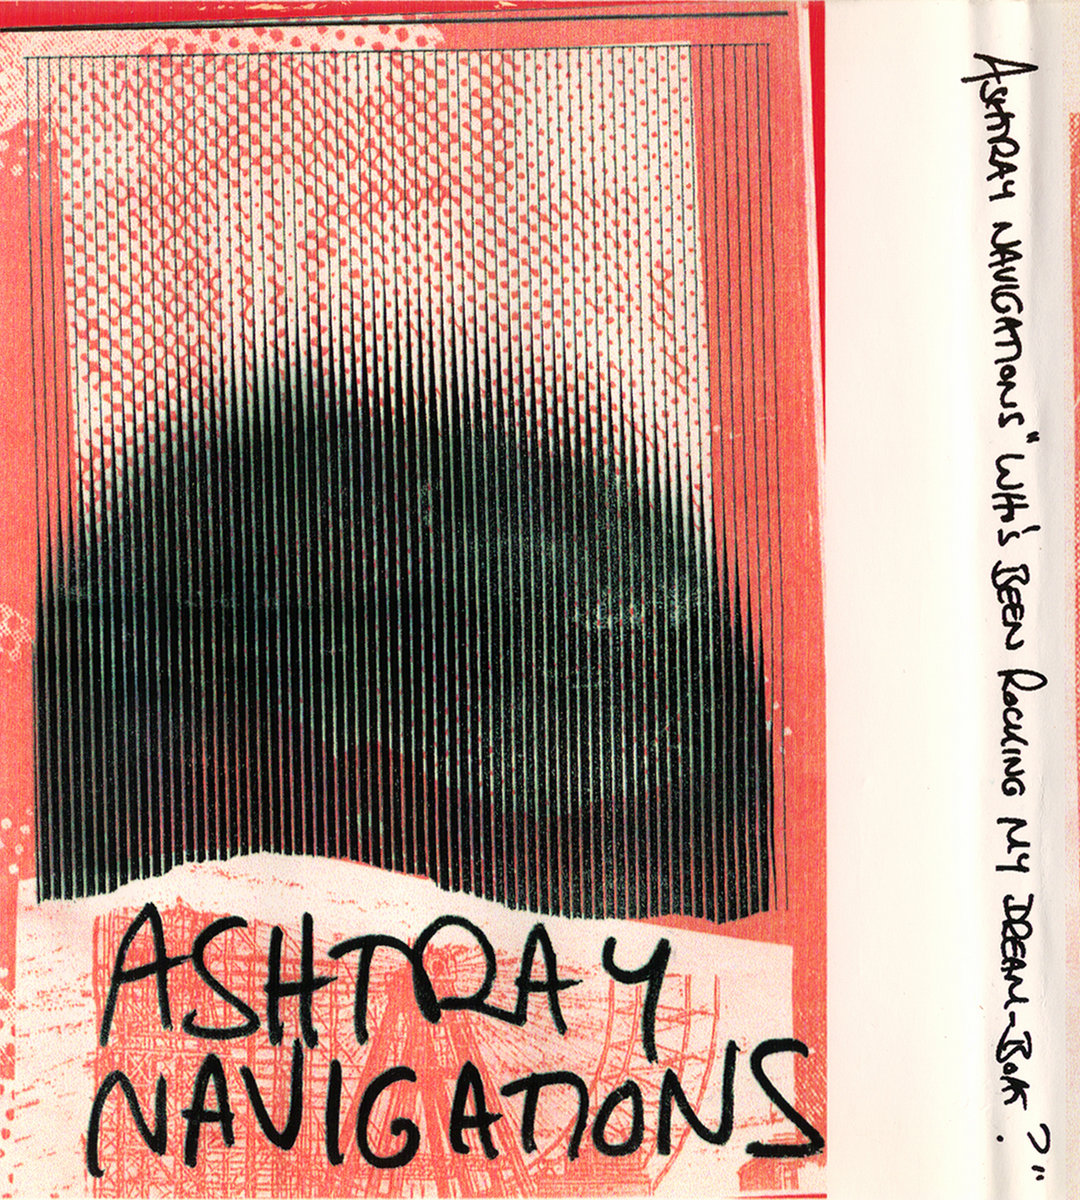 ASHTRAY
NAVIGATIONS
ASHTRAY NAVIGATIONS "WHO'S BEEN ROCKING MY DREAM-BOAT?"